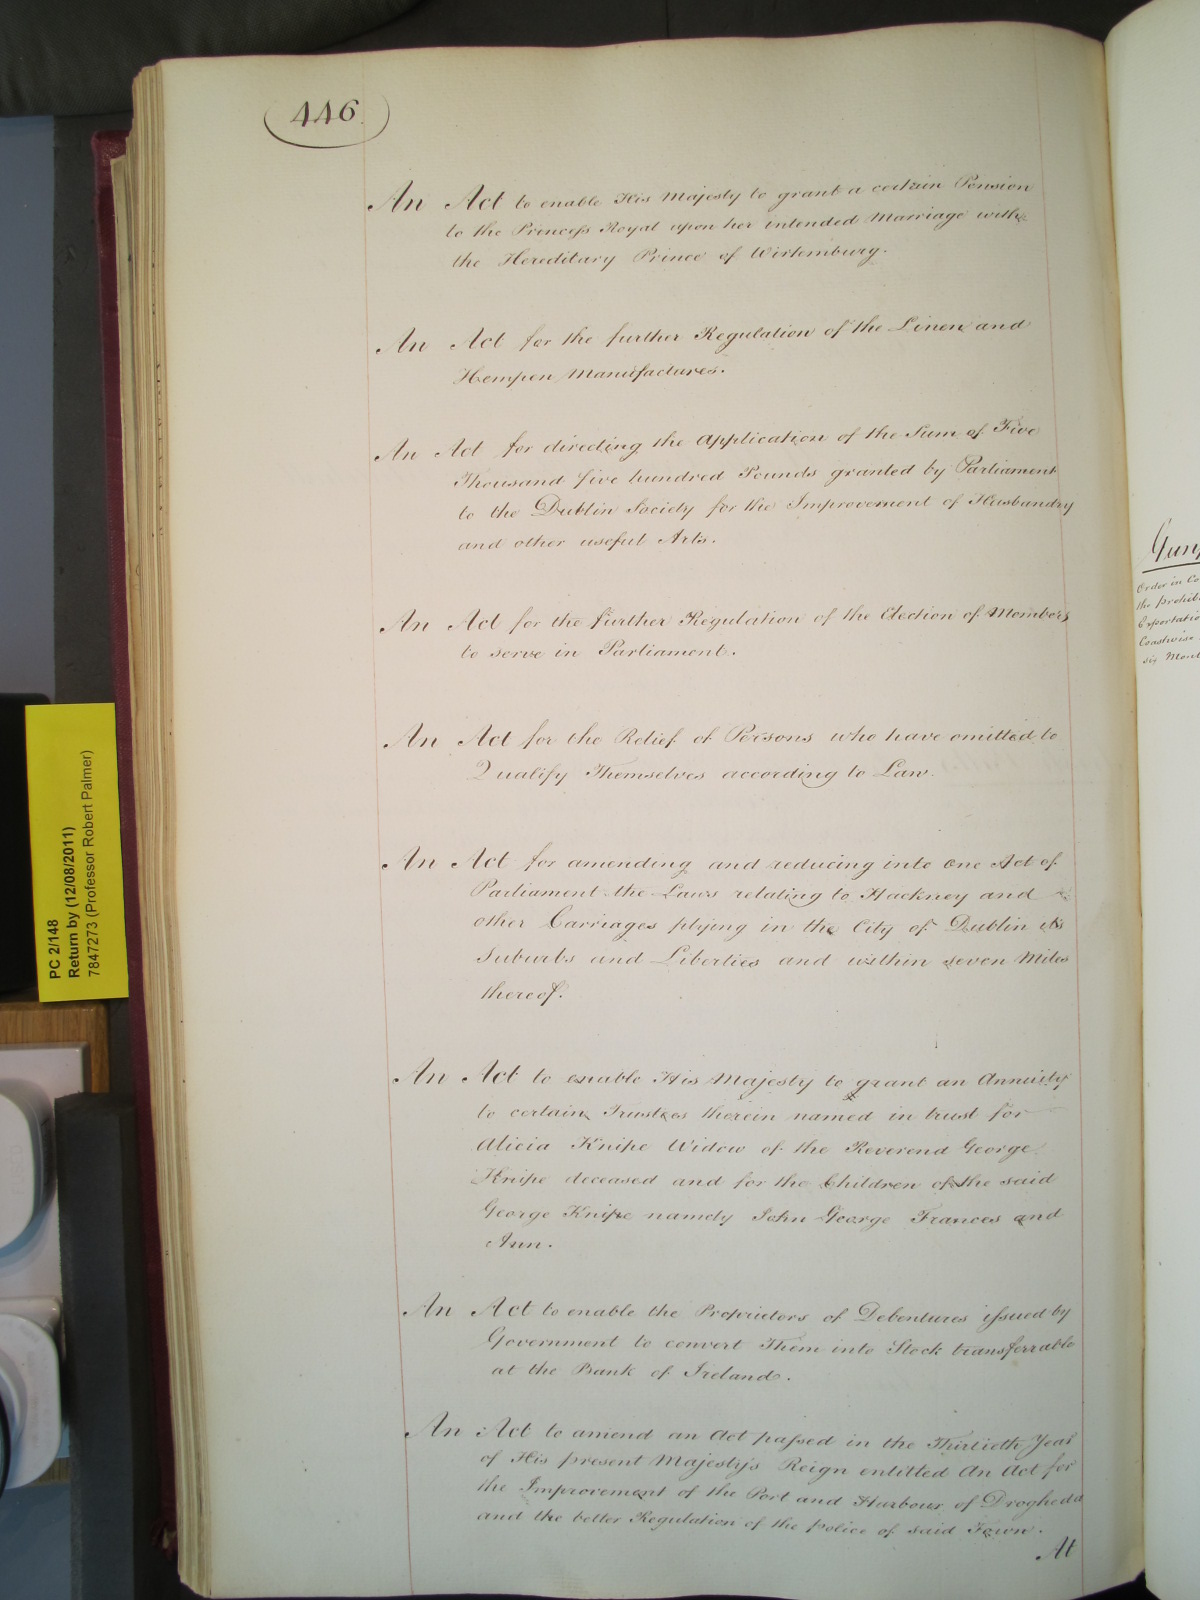 446
An Act to enable His Majesty to grant a certain Pension
to the Princess Royal upon her intended Marriage with
the Hereditary Prince of Wirtemburg.
An Act for the further Regulation of the Linen and
Hempen Manufactures.
An Act for directing the Application of the Sum of Five
Thousand five hundred Pounds granted by Parliament
to the Dublin Society for the Improvement of Husbandry
and other useful Arts.
An Act for the further Regulation of the Election of Members
to serve in Parliament.
An Act for the Relief of Persons who have omitted to
Qualify Themselves according to Law.
An Act for amending and reducing into one Act of
Parliament the Laws relating to Hackney and
other Carriages plying in the City of Dublin its
Suburbs and Liberties and within seven Miles
thereof.
An Act to enable His Majesty to grant an Annuity
to certain Trustees therein named in trust for
Alicia Knipe Widow of the Reverend George
Knipe deceased and for the Children of the said
George Knipe namely John George Frances and
Ann.
An Act to enable the Proprietors of Debentures issued by
Government to convert Them into Stock transferrable
at the Bank of Ireland.
An Act to amend an Act passed in the Thirtieth Year
of His present Majesty's Reign entitled An Act for
the Improvement of the Port and Harbour of Drogheda
and the better Regulation of the Police of said Town.
At
Order in Co
the prohib
Exportatio
Coastwise
six Mont
PC 2/148
Return by (12/08/2011)
7847273 (Professor Robert Palmer)